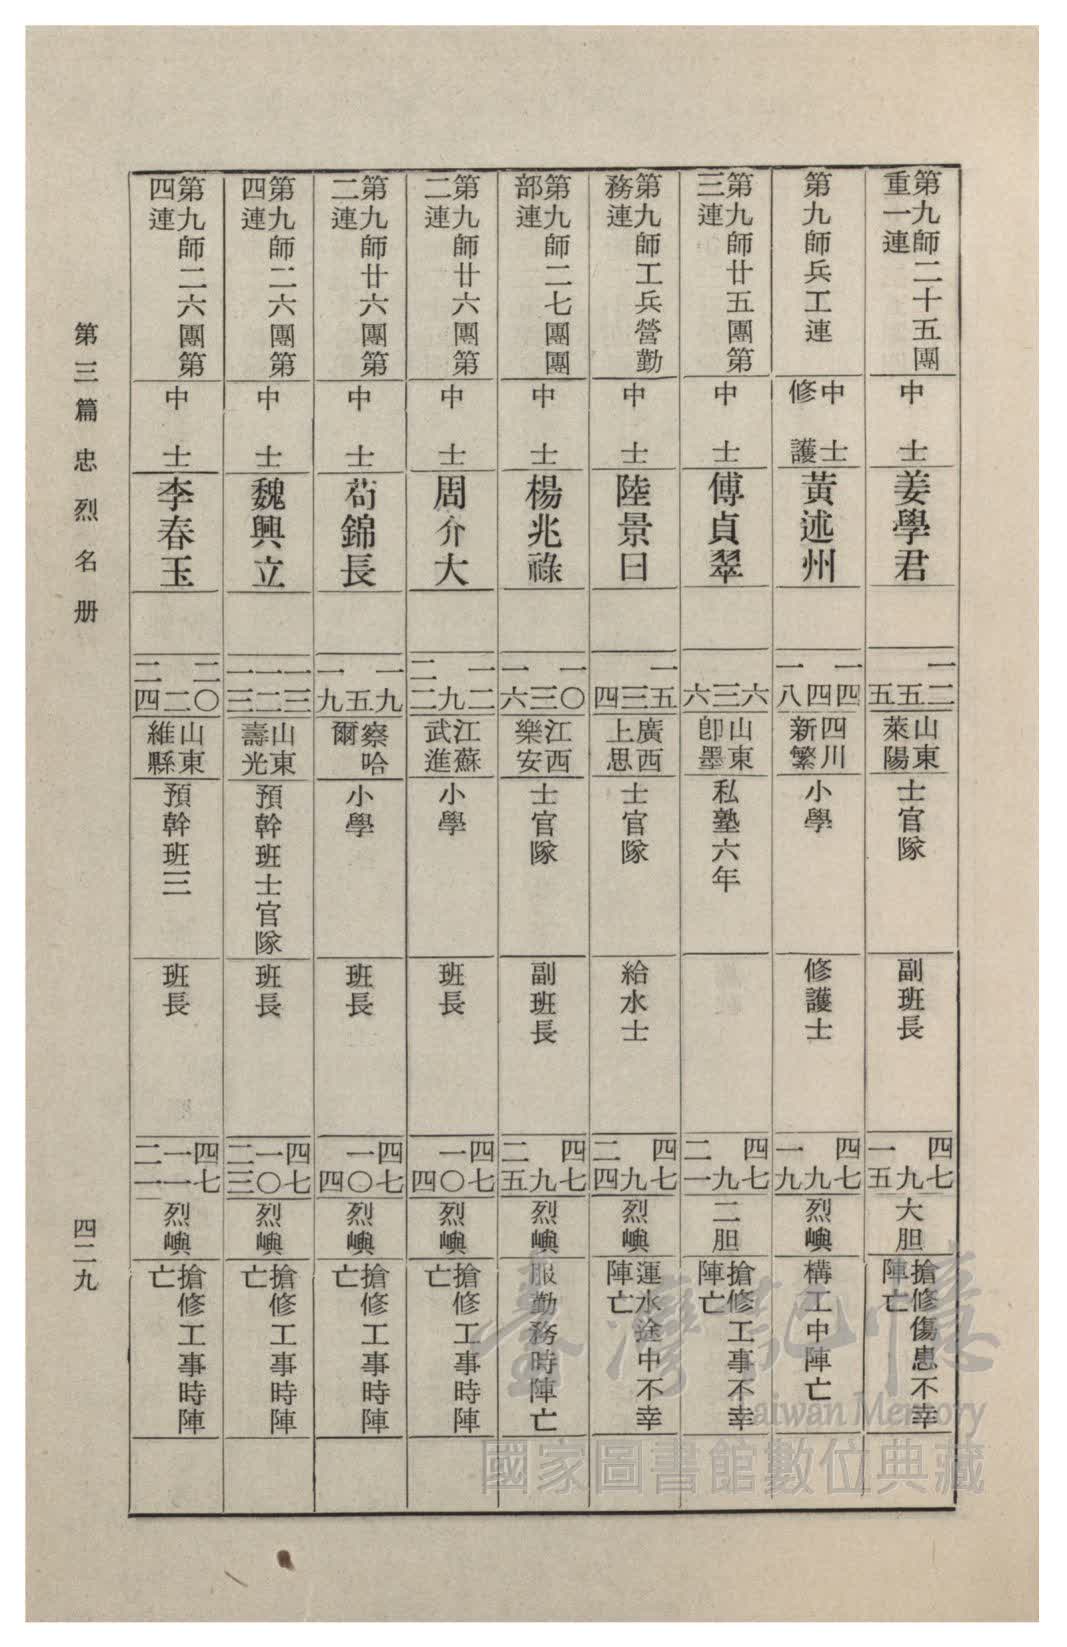 第九師二十五團
重一連
中士
姜學君
一二
五
五
山東
萊陽
士官隊
副班長
四七
九
一五
大胆
搶修傷患不幸
陣亡
第九師兵工連
中士
修護
黃述州
一四
四
一八
四川
新繁
小學
修護士
四七
九
一九
烈嶼
構工中陣亡
第九師廿五團第
三連
中士
傅貞翠
六
三
六
山東
卽墨
私塾六年
四七
九
二一
二胆
搶修工事不幸
陣亡
第九師工兵營勤
務連
中士
陸景日
一五
三
四
廣西
上思
士官隊
給水士
四七
九
二四
烈嶼
運水途中不幸
陣亡
第九師二七團團
部連
中士
楊兆祿
一〇
三
一六
江西
樂安
士官隊
副班長
四七
九
二五
烈嶼
服勤務時陣亡
第九師廿六團第
二連
中士
周介大
一二
九
二二
江蘇
武進
小學
班長
四七
一〇
四
烈嶼
搶修工事時陣
亡
第九師廿六團第
二連
中士
荀錦長
一九
五
一九
察哈
爾
小學
班長
四七
一〇
四
烈嶼
搶修工事時陣
亡
第九師二六團第
四連
中士
魏興立
一三
一二
一三
山東
壽光
預幹班士官隊
班長
四七
一〇
二三
烈嶼
搶修工事時陣
亡
第九師二六團第
四連
中士
李春玉
二〇
二
二四
山東
維縣
預幹班三
班長
四七
一一
二一
烈嶼
搶修工事時陣
亡
第三篇 忠烈名册
四二九
臺灣記憶
Taiwan Memory
國家圖書館數位典藏